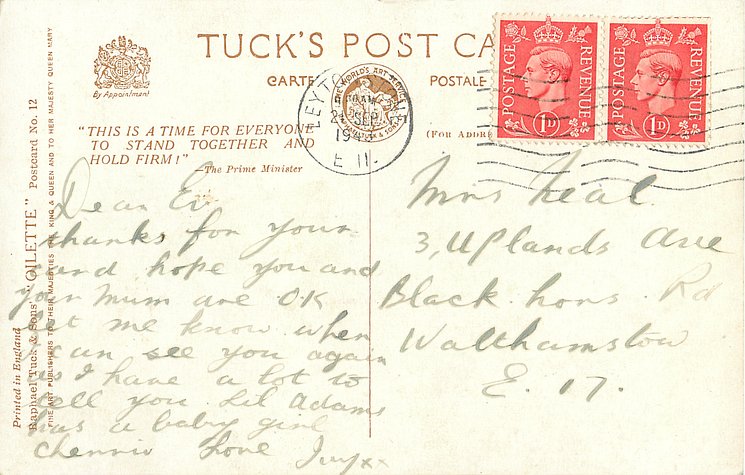 TUCK'S POST CA
CARTE POSTALE
By Appointment
LEYTO
THE WORLD'S ART SERVICE
SEP
194
E 11.
POSTAGE REVENUE
1D
POSTAGE REVENUE
1D
"THIS IS A TIME FOR EVERYONE
TO STAND TOGETHER AND
HOLD FIRM!"
—The Prime Minister
(FOR ADDRE
Printed in England
Raphael Tuck & Sons' "OILETTE" Postcard No. 12
FINE ART PUBLISHERS TO THEIR MAJESTIES THE KING & QUEEN AND TO HER MAJESTY QUEEN MARY
Dear
thanks for your
card hope you and
your Mum are O.K
let me know when
I can see you again
as I have a lot to
tell you Lil Adams
has a baby girl
cheerio love xx
Mrs Neal
3, Uplands Ave
Black hors. Rd
Walthamstow
E. 17.